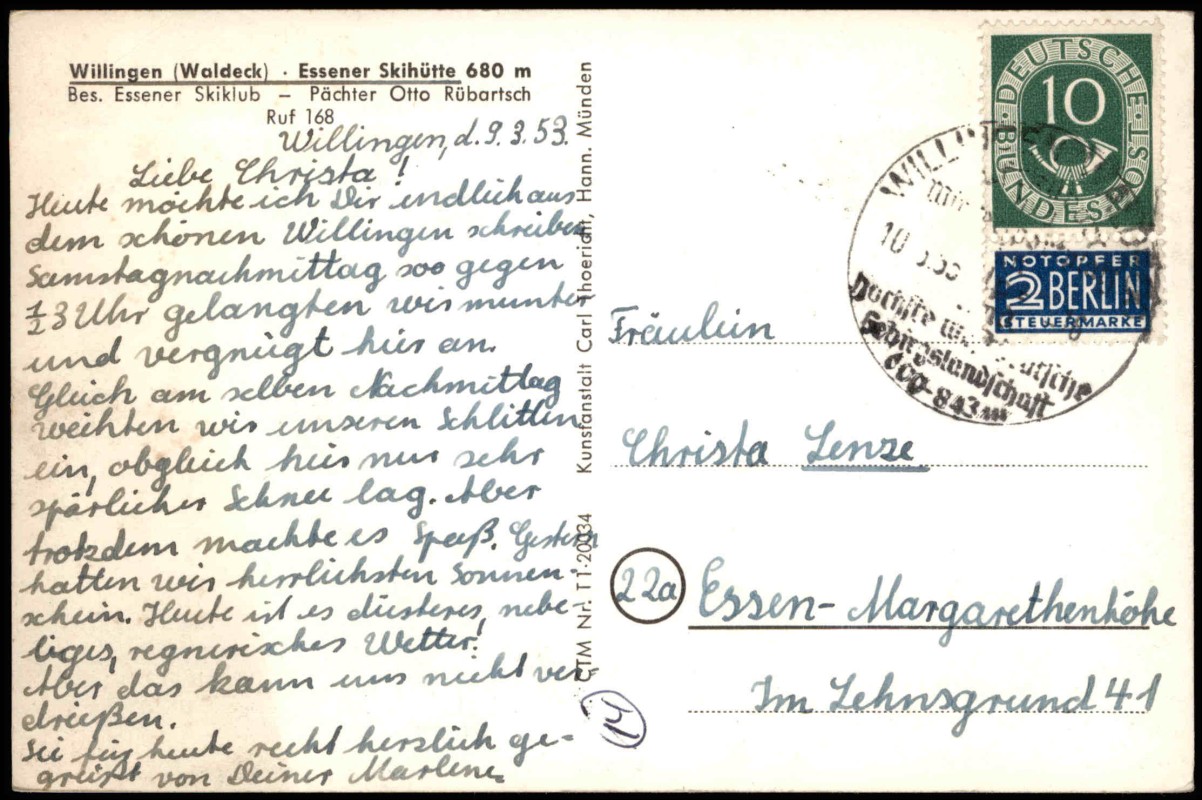 Willingen (Waldeck) · Essener Skihütte 680 m
Bes. Essener Skiklub – Pächter Otto Rübartsch
Ruf 168
Willingen, d. 9.3.53.
Liebe Christa!
Heute möchte ich Dir endlich aus
dem schönen Willingen schreiben
Samstagnachmittag soo gegen
½3 Uhr gelangten wir munter
und vergnügt hier an.
Gleich am selben Nachmittag
weihten wir unseren Schlitten
ein, obgleich hier nur sehr
spärlicher Schnee lag. Aber
trotzdem machte es Spaß. Gestern
hatten wir herrlichsten Sonnen-
schein. Heute ist es düsteres, nebe-
liges, regnerisches Wetter!
Aber das kann uns nicht ver-
drießen.
Sei für heute recht herzlich ge-
grüßt von Deiner Marlene
CTM Nr. T1-20034 Kunstanstalt Carl Thoericht, Hann. Münden
14
DEUTSCHE BUNDESPOST
10
NOTOPFER
2 BERLIN
STEUERMARKE
Höchste
Gebirgslandschaft
843m
Fräulein
Christa Lenze
22a Essen-Margarethenhöhe
Im Lehnsgrund 41